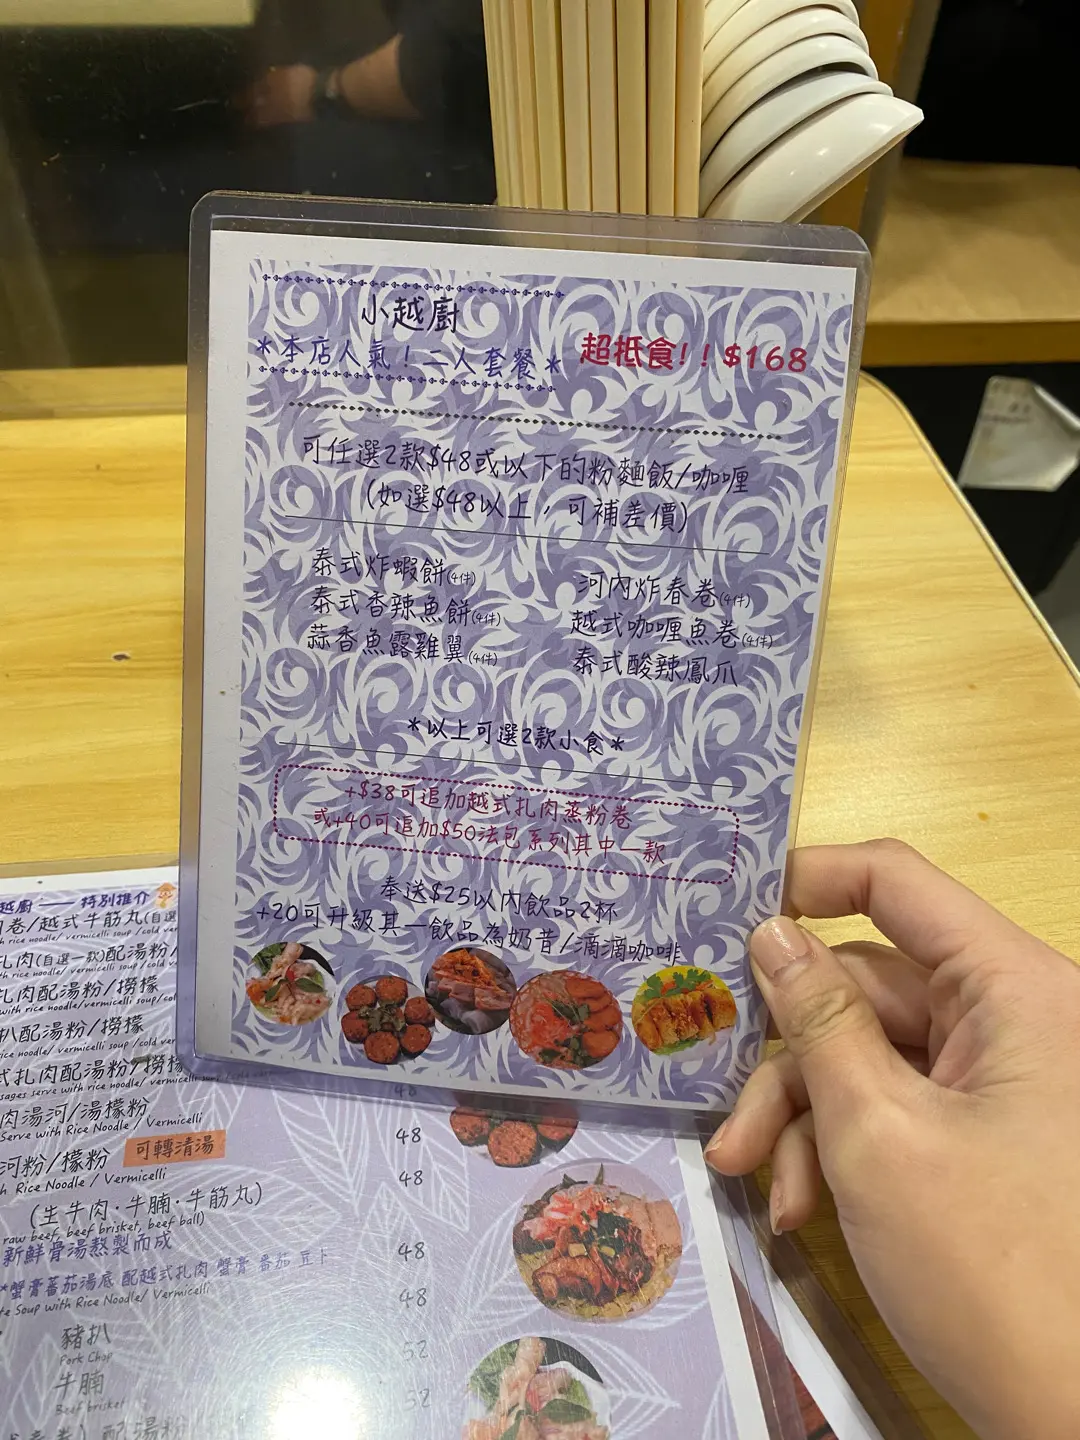 小越廚
*本店人氣！二人套餐*
超抵食!！$168
可任選2款$48或以下的粉麵飯/咖喱
(如選$48以上，可補差價)
泰式炸蝦餅(4件)
泰式香辣魚餅(4件)
蒜香魚露雞翼(4件)
河內炸春卷(4件)
越式咖喱魚卷(4件)
泰式酸辣鳳爪
*以上可選2款小食*
+$38可追加越式扎肉蒸粉卷
或+40可追加$50法包系列其中一款
奉送$25以內飲品2杯
+20可升級其一飲品為奶昔/滴滴咖啡
越廚 — 特別推介
卷/越式牛筋丸(自選
rice noodle/ vermicelli soup /cold
扎肉(自選一款)配湯粉/
with rice noodle/ vermicelli soup /cold
扎肉配湯粉/撈檬
with rice noodle/ vermicelli soup/
扒配湯粉/撈檬
rice noodle/ vermicelli soup/ cold
式扎肉配湯粉/撈檬
sages serve with rice noodle/ vermicelli soup /cold
48
肉湯河/湯檬粉
Serve with Rice Noodle / Vermicelli
48
河粉/檬粉 可轉清湯
Rice Noodle / Vermicelli
48
(生牛肉·牛腩·牛筋丸)
raw beef, beef brisket, beef ball)
新鮮骨湯熬製而成
48
*蟹膏蕃茄湯底 配越式扎肉 蟹膏 蕃茄 豆卜
Soup with Rice Noodle/ Vermicelli
48
豬扒
Pork Chop
52
牛腩
Beef brisket
52
配湯粉